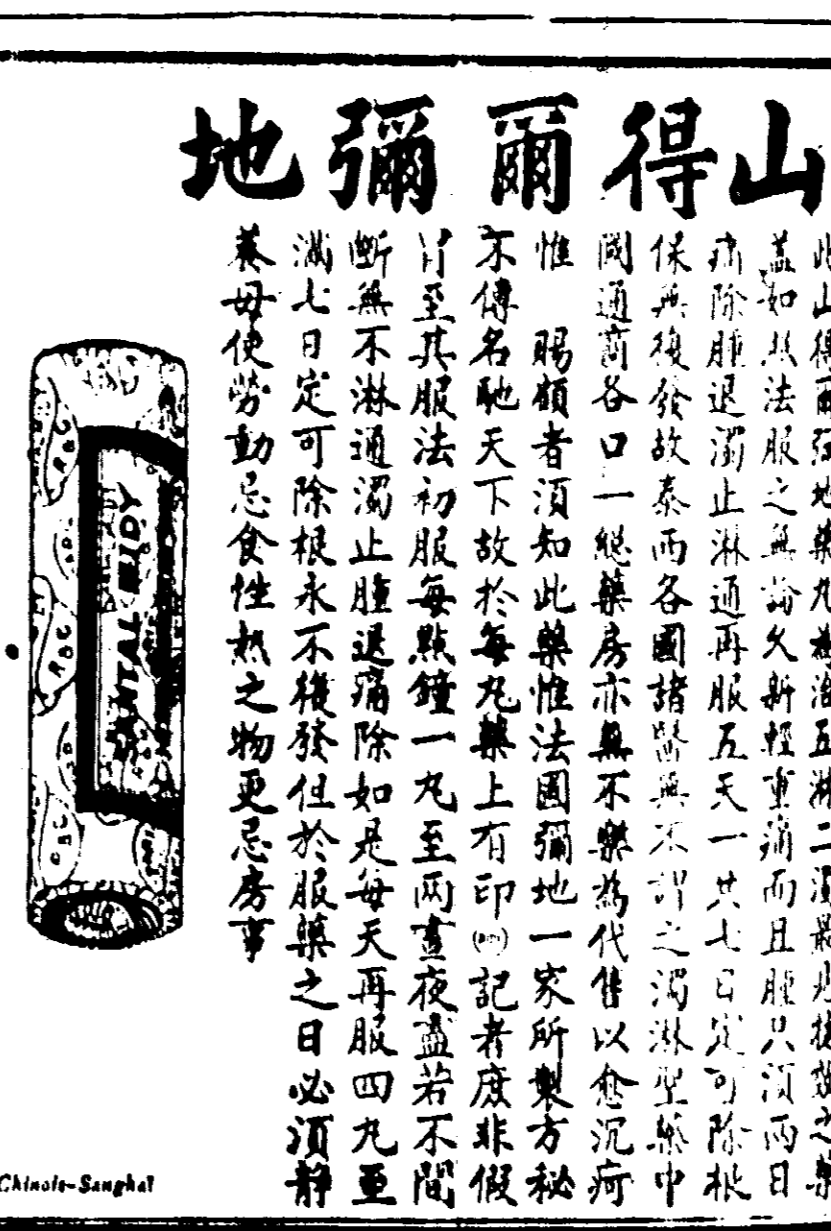 山得爾彌地
此山得爾彌地藥丸為治五淋二濁最見捷效之藥
蓋如照法服之無論久新輕重痛而且腫只須兩日
痛除腫退濁止淋通再服五天一共七日定可除根
保無復發故泰西各國諸醫無不謂之濁淋聖藥中
國通商各口一總藥房亦無不樂為代售以愈沉疴
惟 賜顧者須知此藥惟法國彌地一家所製方秘
不傳名馳天下故於每丸藥上有印 記者庶非假
冐至其服法初服每點鐘一丸至兩晝夜盡若不間
斷無不淋通濁止腫退痛除如是每天再服四丸至
滿七日定可除根永不復發但於服藥之日必須靜
養毋使勞動忌食性熱之物更忌房事
SANTAL MIDY
Chinois-Sanghaï